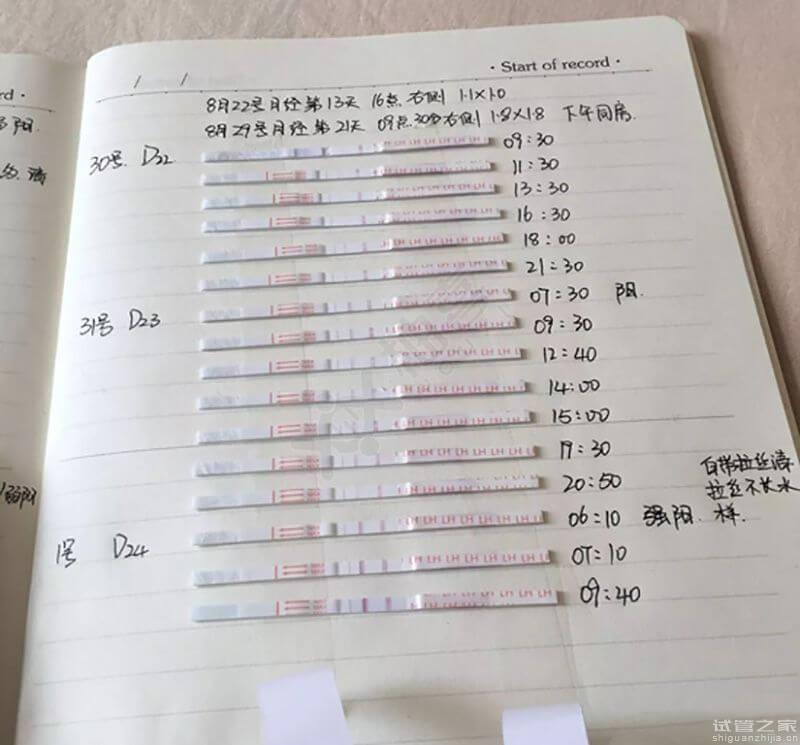 · Start of record ·
8月22号月经第13天 16点 右侧 1.1×1.0
8月29号月经第21天 09点30分右侧 1.8×1.8 下午同房
30号 D22
09:30
11:30
13:30
16:30
18:00
21:30
31号 D23
07:30 阳.
09:30
12:40
14:00
15:00
19:30
20:50
白带拉丝清
拉丝不长水
样.
1号 D24
06:10 强阳.
07:10
09:40
LH LH LH LH LH LH LH
试管之家
shiguanzhijia.cn